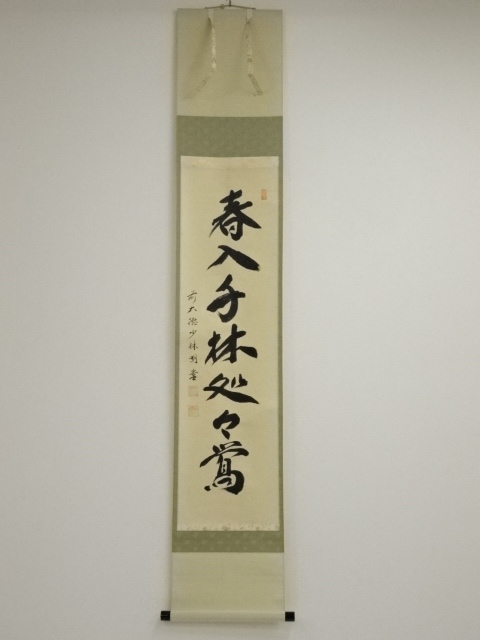 春入千林処々鶯
前大徳少林